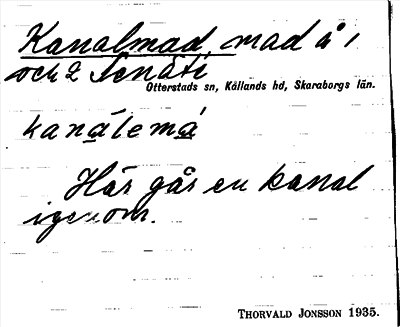 Kanalmad, mad å 1
och 2 Senäti
Otterstads sn, Kållands hd, Skaraborgs län.
kanálemá
Här går en kanal
igenom.
THORVALD JONSSON 1935.